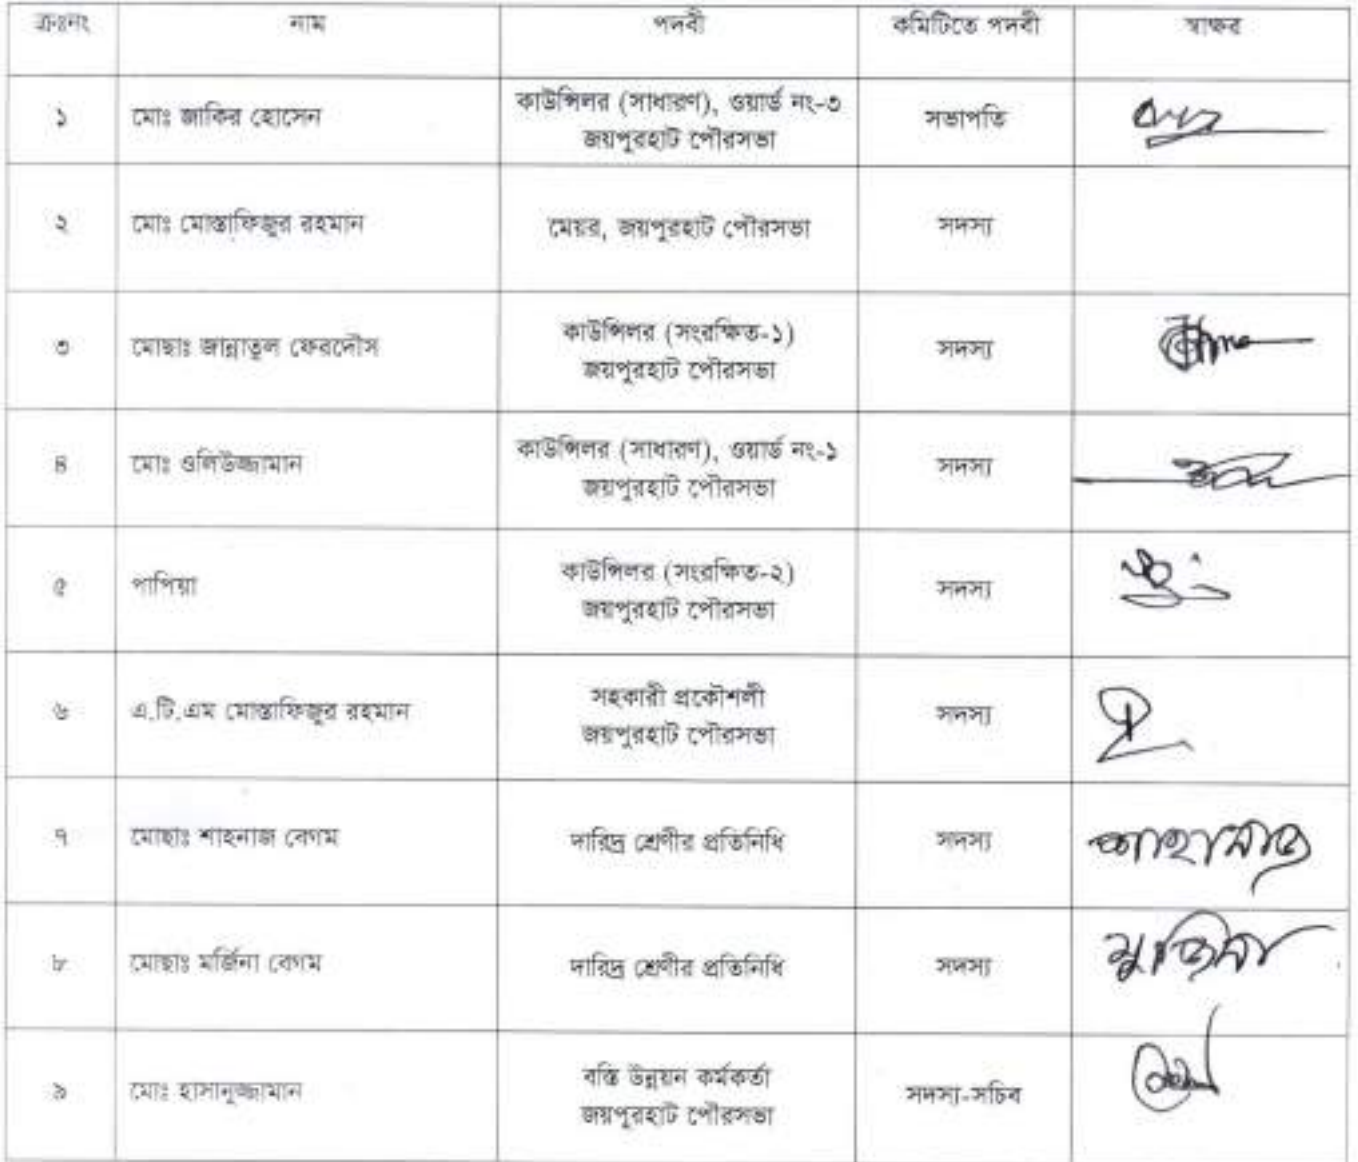 ক্রঃনং নাম পদবী কমিটিতে পদবী স্বাক্ষর
১ মোঃ জাকির হোসেন কাউন্সিলর (সাধারণ), ওয়ার্ড নং-৩ সভাপতি
জয়পুরহাট পৌরসভা
২ মোঃ মোস্তাফিজুর রহমান মেয়র, জয়পুরহাট পৌরসভা সদস্য
৩ মোছাঃ জান্নাতুল ফেরদৌস কাউন্সিলর (সংরক্ষিত-১) সদস্য
জয়পুরহাট পৌরসভা
৪ মোঃ ওলিউজ্জামান কাউন্সিলর (সাধারণ), ওয়ার্ড নং-১ সদস্য
জয়পুরহাট পৌরসভা
৫ পাপিয়া কাউন্সিলর (সংরক্ষিত-২) সদস্য
জয়পুরহাট পৌরসভা
৬ এ.টি.এম মোস্তাফিজুর রহমান সহকারী প্রকৌশলী সদস্য
জয়পুরহাট পৌরসভা
৭ মোছাঃ শাহনাজ বেগম দারিদ্র শ্রেণীর প্রতিনিধি সদস্য শাহানাজ
৮ মোছাঃ মর্জিনা বেগম দারিদ্র শ্রেণীর প্রতিনিধি সদস্য
৯ মোঃ হাসানুজ্জামান বস্তি উন্নয়ন কর্মকর্তা সদস্য-সচিব
জয়পুরহাট পৌরসভা